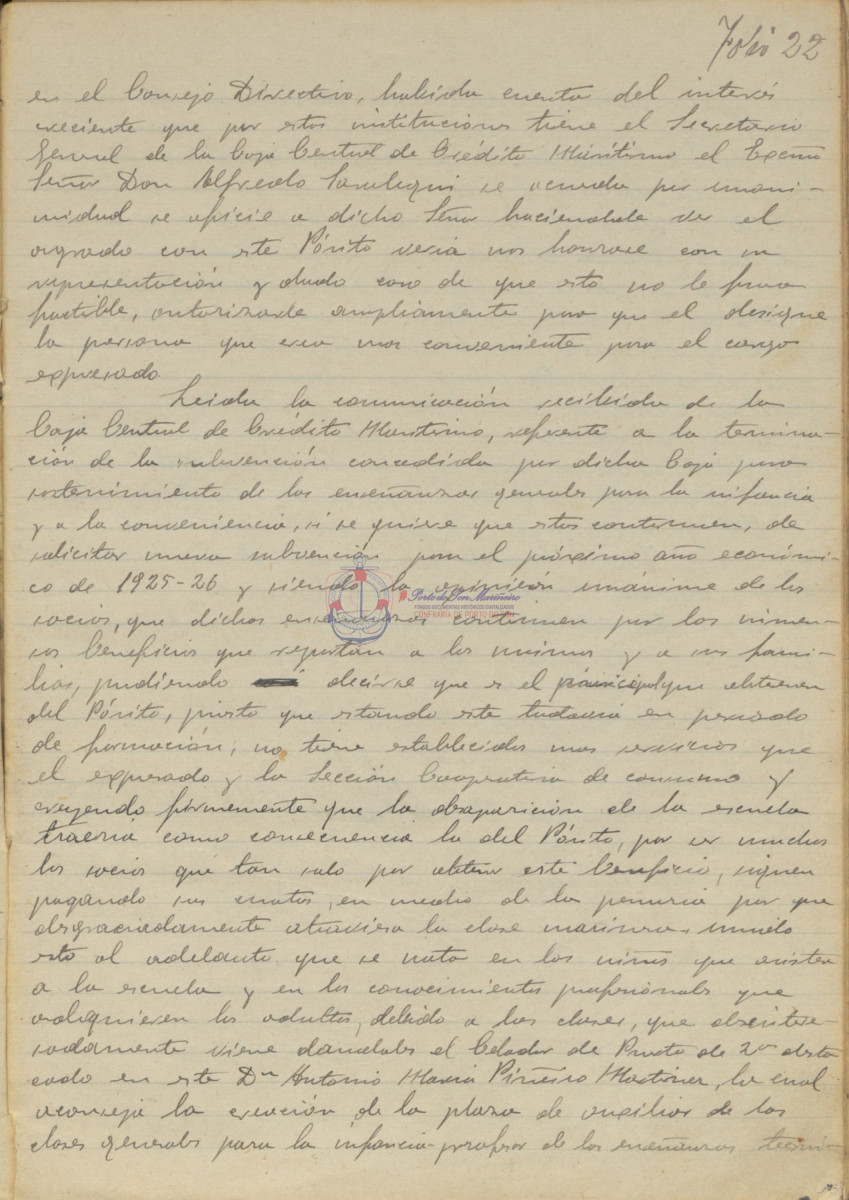 Folio 22
en el Consejo Directivo, habida cuenta del interés
creciente que por estas instituciones tiene el Secretario
General de la Caja Central de Crédito Marítimo el Excmo
Señor Don Alfredo Saralegui se acuerda por unani-
midad se oficie a dicho Señor haciendole ver el
agrado con este Pósito veria nos honrase con su
representación y dado caso de que esto no le fuera
factible, autorizarle ampliamente para que el designe
la persona que crea mas conveniente para el cargo
expresado.
Leida la comunicación recibida de la
Caja Central de Crédito Maritimo, referente a la termina-
ción de la subvención concedida por dicha Caja para
sostenimiento de las enseñanzas generales para la infancia
y a la conveniencia, si se quiere que estas continuen, de
solicitar nueva subvención para el próximo año económi-
co de 1925-26 y siendo la opinión unánime de los
socios, que dichas enseñanzas continuen por los inmen-
sos beneficios que reportan a los mismos y a sus fami-
lias, pudiendo decirse que es el principal que obtienen
del Pósito, puesto que estando este todavia en periodo
de formación, no tiene establecidos mas servicios que
el expresado y la Sección Cooperativa de consumo y
creyendo firmemente que la desaparición de la escuela
traeria como consecuencia la del Pósito, por ser muchos
los socios que tan solo por obtener este beneficio, siguen
pagando sus cuotas, en medio de la penuria por que
desgraciadamente atraviesa la clase marinera, unido
esto al adelanto que se nota en los niños que asisten
a la escuela y en los conocimientos profesionales que
adquieren los adultos, debido a las clases, que desintere-
sadamente viene dandoles el Celador de Puerto de 2ª desta
cado en este Dn Antonio Maria Piñeiro Martinez, lo cual
aconseja la creación de la plaza de auxiliar de las
clases generales para la infancia-profesor de las enseñanzas tecni-
#PortodoSon Mariñeiro
FONDOS DOCUMENTAIS HISTÓRICOS DIXITALIZADOS
CONFRARÍA DE PORTO DO SON